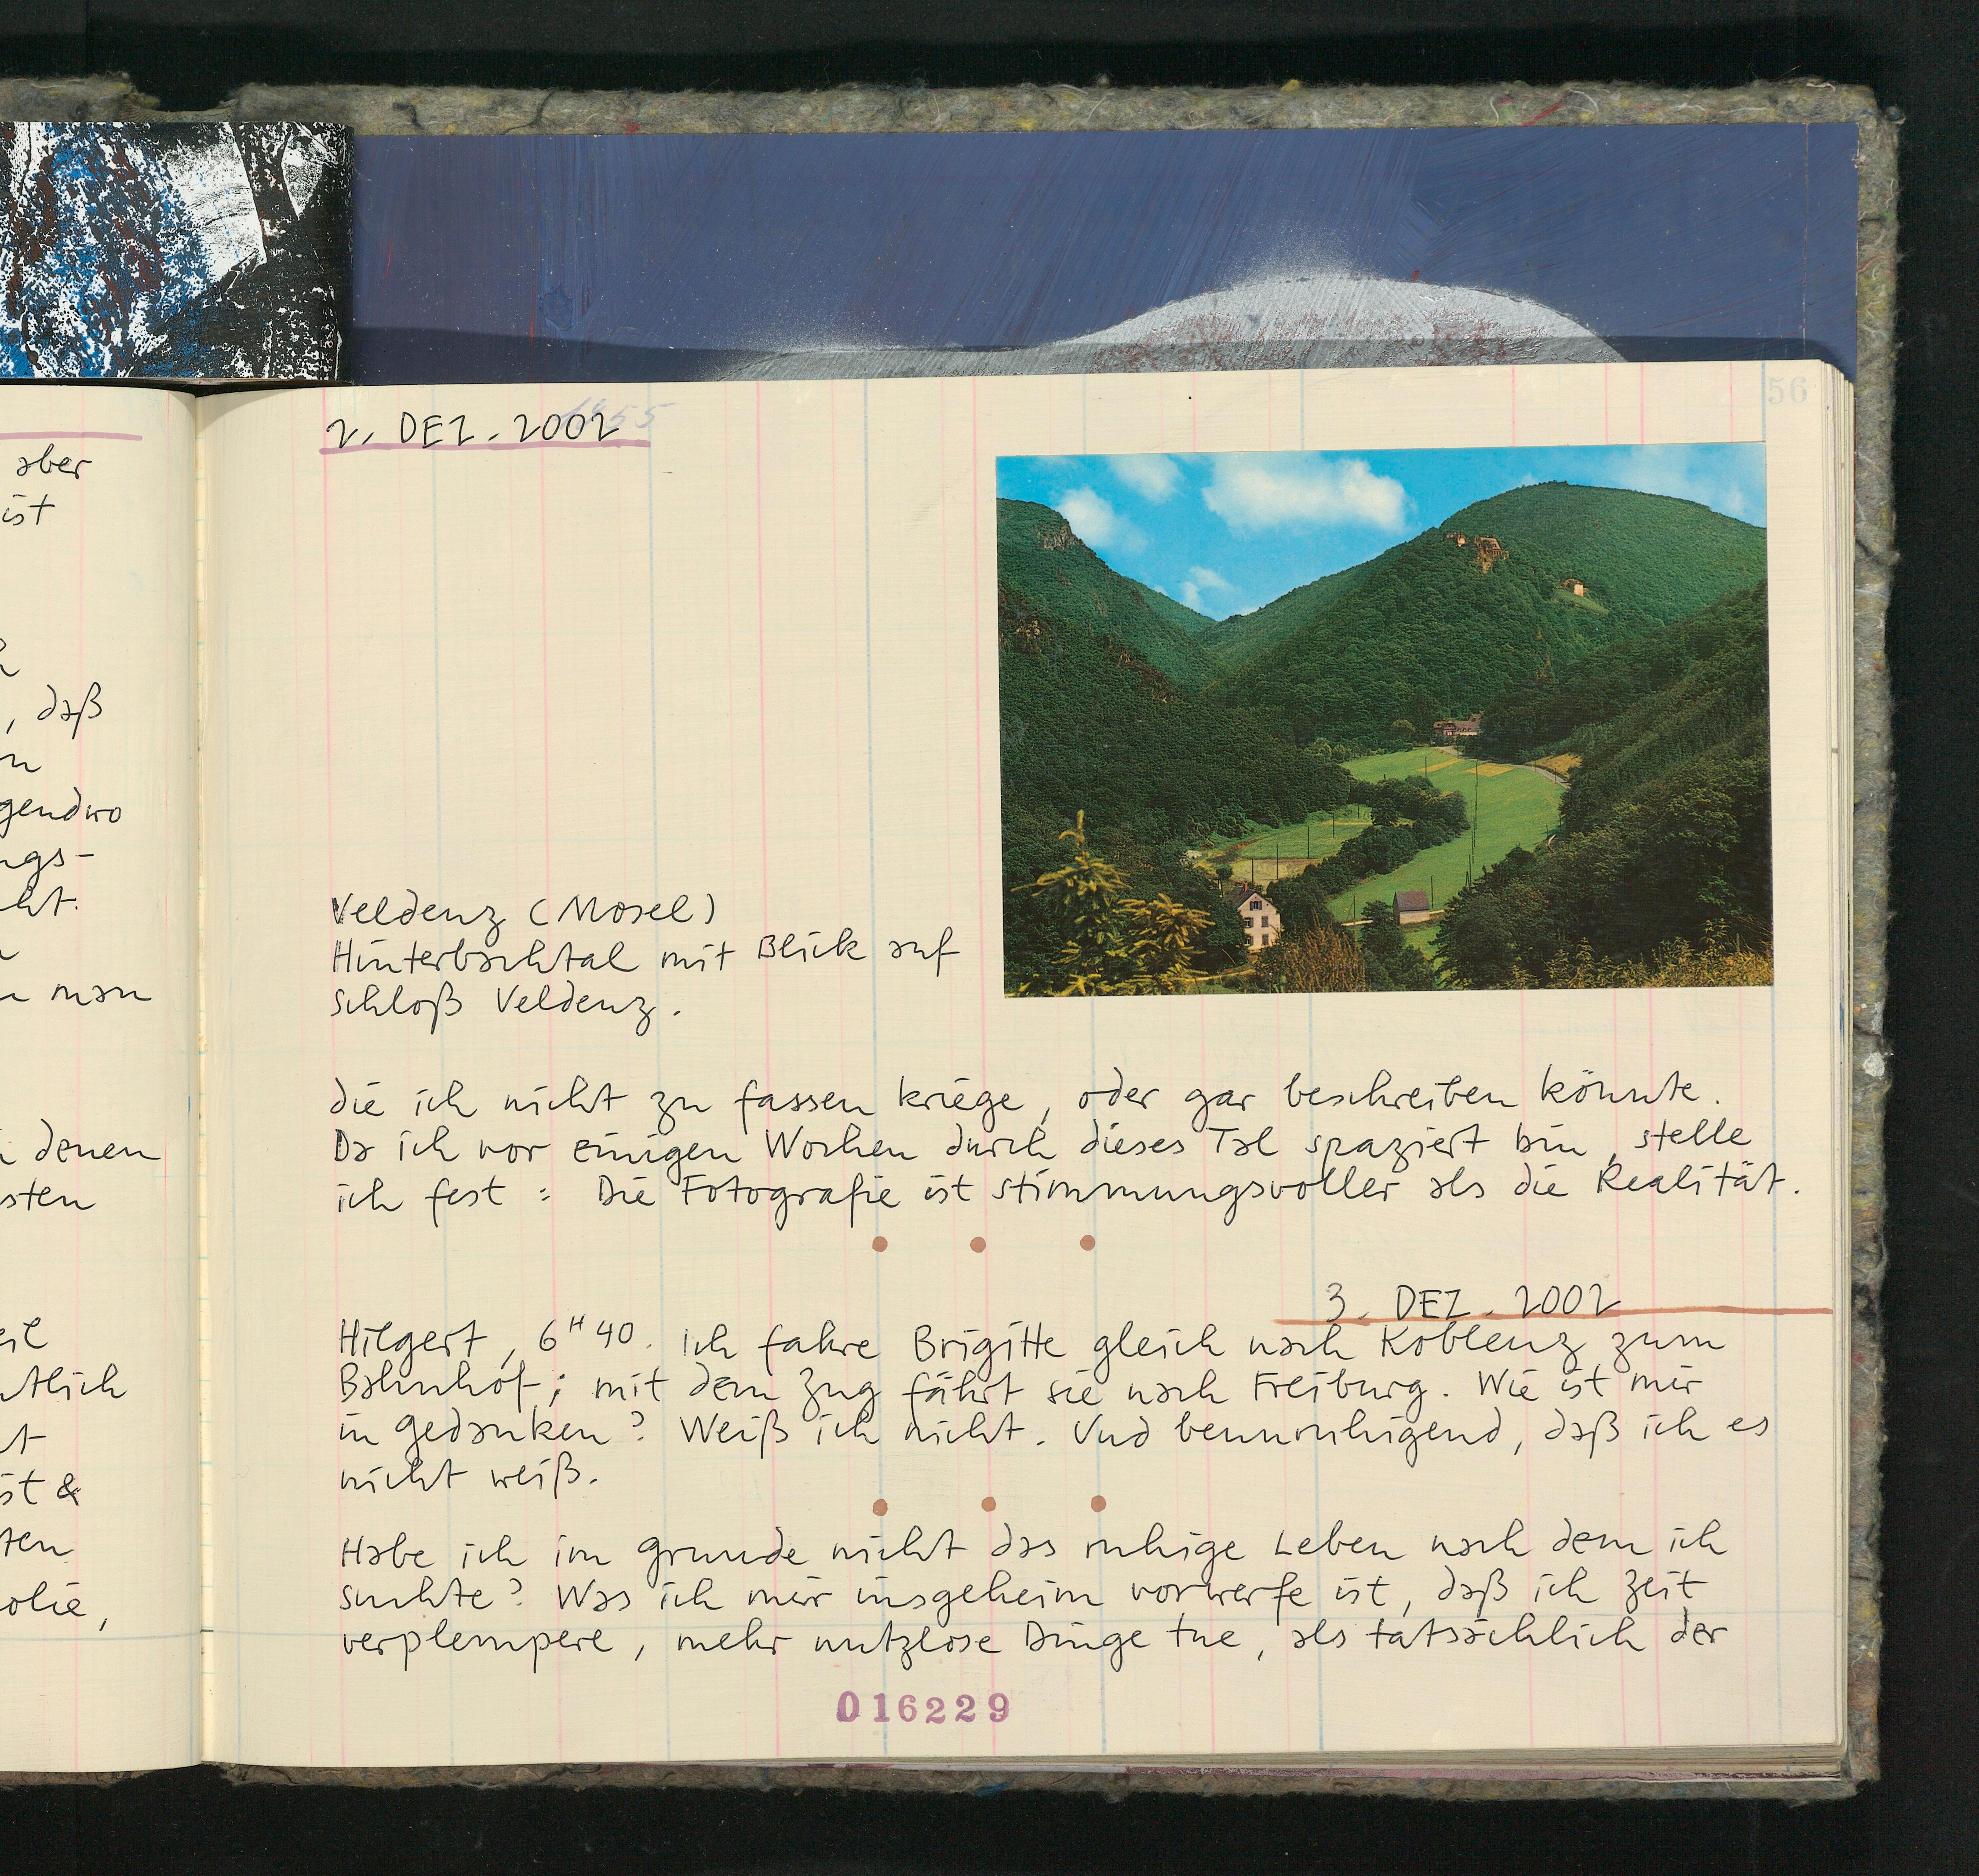 aber
ist
, daß
gendwo
ngs-
ht.
man
denen
sten
ntlich
st &
ten
olie,
56
2. DEZ. 2002
Veldenz (Mosel)
Hinterbachtal mit Blick auf
Schloß Veldenz.
die ich nicht zu fassen kriege, oder gar beschreiben könnte.
Da ich vor einigen Wochen durch dieses Tal spaziert bin, stelle
ich fest: Die Fotografie ist stimmungsvoller als die Realität.
3. DEZ. 2002
Hilgert, 6H40. Ich fahre Brigitte gleich nach Koblenz zum
Bahnhof; mit dem Zug fährt sie nach Freiburg. Wie ist mir
in Gedanken? Weiß ich nicht. Und beunruhigend, daß ich es
nicht weiß.
Habe ich im Grunde nicht das ruhige Leben nach dem ich
suchte? Was ich mir insgeheim vorwerfe ist, daß ich Zeit
verplempere, mehr nutzlose Dinge tue, als tatsächlich der
016229